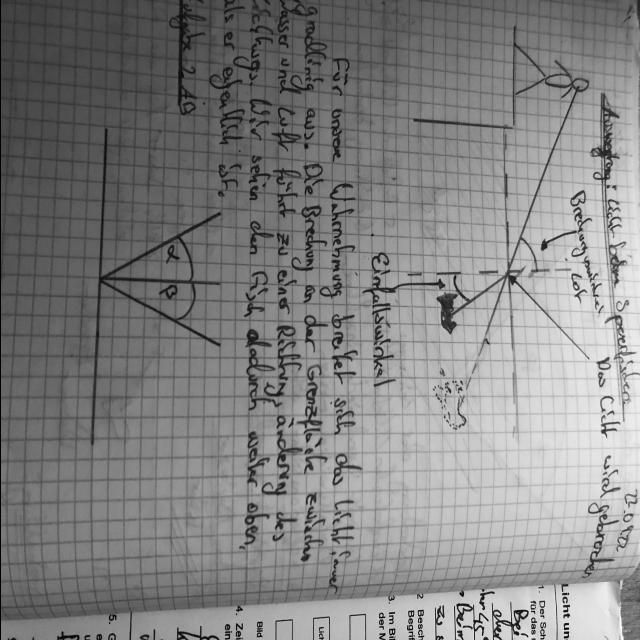 Licht beim Speerfischen
Das Licht wird gebrochen
Brechungswinkel
Lot
Einfallswinkel
Für unsere Wahrnehmung breitet sich das Licht immer
gradlinig aus. Die Brechung an der Grenzfläche zwischen
Wasser und Luft führt zu einer Richtungsänderung des
Lichtweges. Wir sehen den Fisch dadurch weiter oben,
als er eigentlich ist.
Aufgabe 2
α β
Licht
1. Der
2 Besch
Begri
3. Im Bi
der M
4. Zei
ein
Bild
5. G